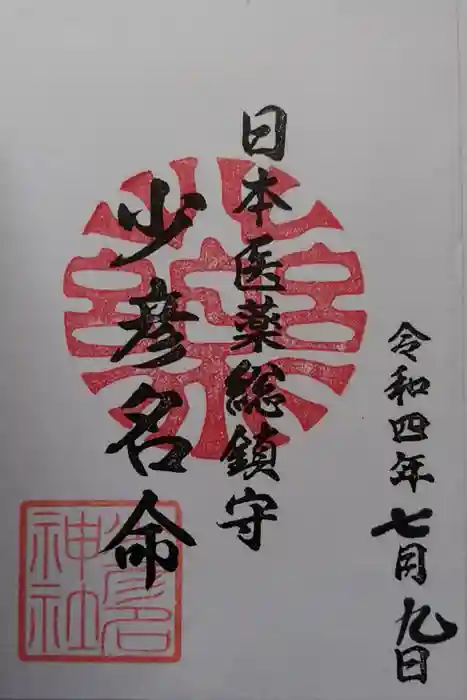 令和四年七月九日
日本医薬総鎮守
少彦名命
少彦名
神社